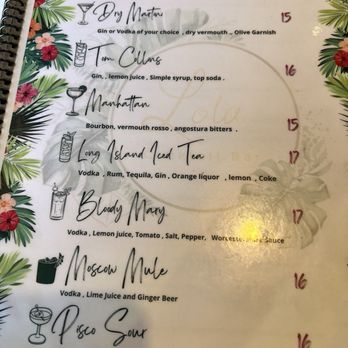 Dry Martini 15
Gin or Vodka of your choice , dry vermouth .. Olive Garnish
Tom Collins 16
Gin, , lemon juice , Simple syrup, top soda .
Manhattan
Bourbon, vermouth rosso , angostura bitters . 15
Long Island Iced Tea 17
Vodka , Rum, Tequila, Gin , Orange liquor , lemon , Coke
Bloody Mary 17
Vodka , Lemon juice, Tomato , Salt, Pepper, Worcestershire Sauce
Moscow Mule 16
Vodka , Lime Juice and Ginger Beer
Pisco Sour 16